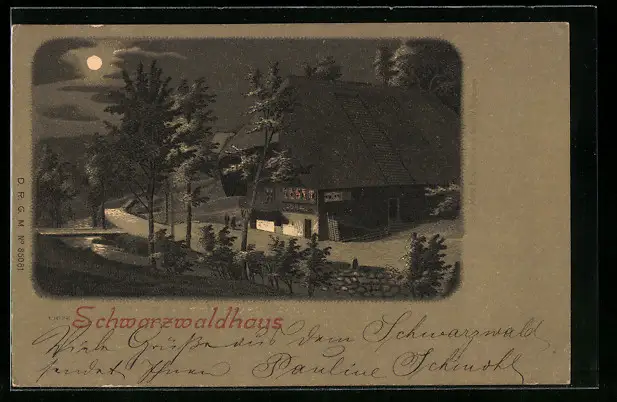 D. R. G. M. Nº 88081
Schwarzwaldhaus
Viele Grüße aus dem Schwarzwald
sendet Ihnen Pauline Schmohl